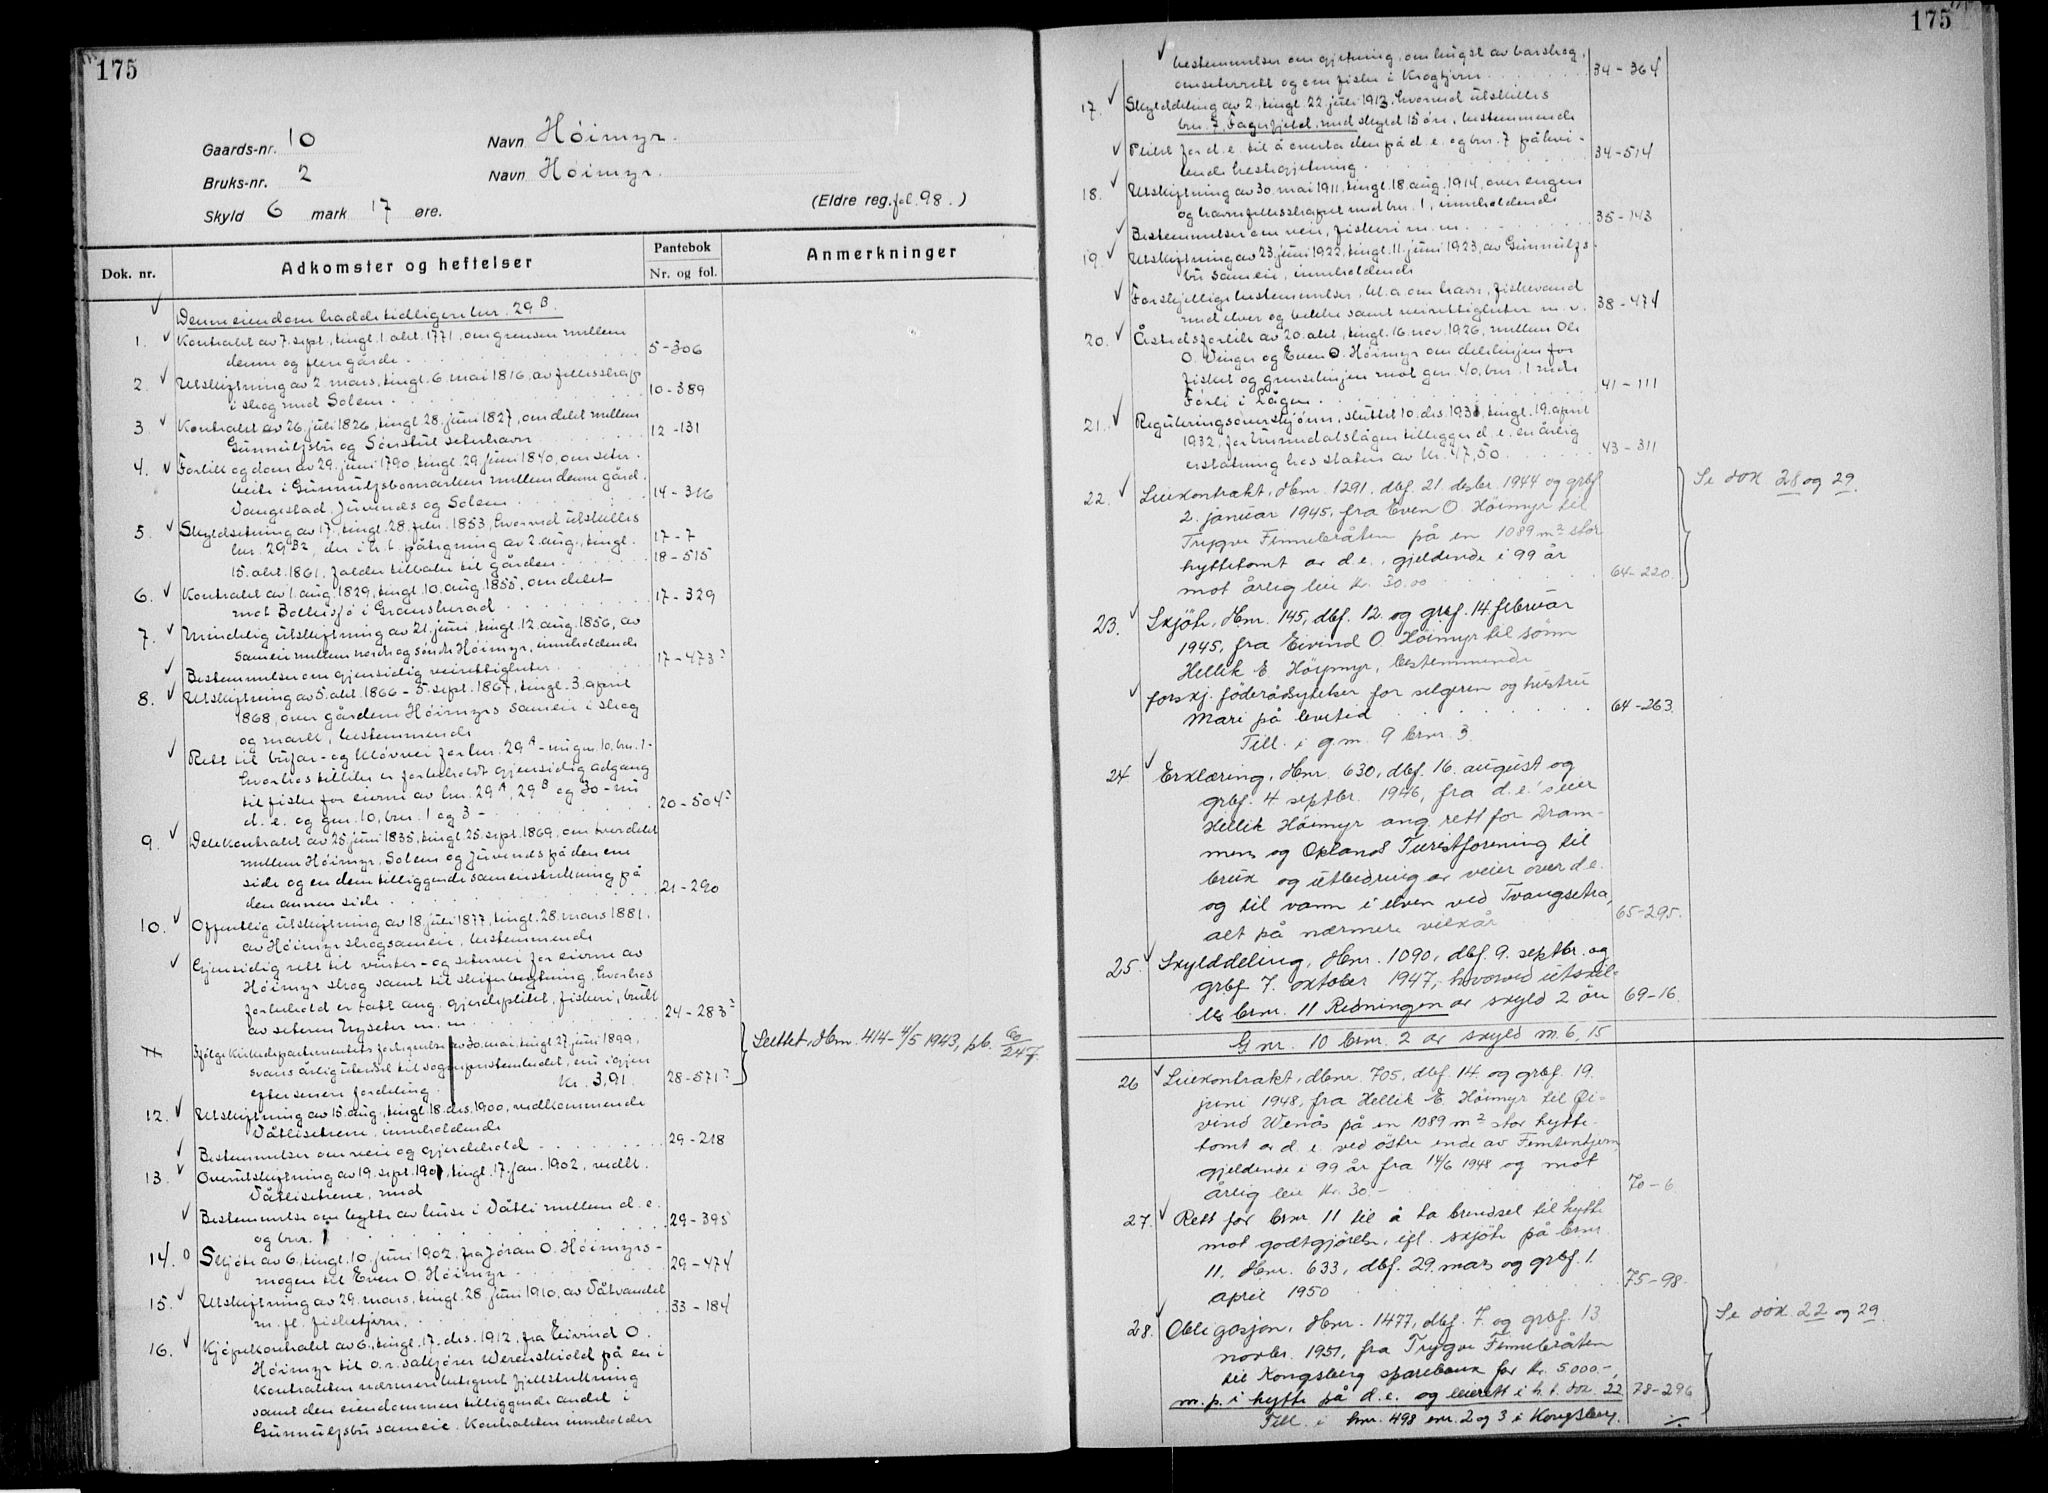 175
Gaards-nr. 10 Navn Höimyr.
Bruks-nr. 2 Navn Höimyr.
Skyld 6 mark 17 øre. (Eldre reg. fol. 98.)
Dok. nr. Adkomster og heftelser Pantebok Nr. og fol. Anmerkninger
Denne eiendom hadde tidligere lnr. 29 B.
1. Kontrakt av 7. sept., tingl. 1. okt. 1771, om grensen mellem
denne og flere gårde. 5-306
2. Utskiftning av 2. mars, tingl. 6. mai 1816, av fellesskap
i skog med Solem. 10-389
3. Kontrakt av 26. juli 1826, tingl. 28. juni 1827, om delet mellem
Gunnulfsbu og Sönstul seterhavn 12-131
4. Forlik og dom av 29. juni 1790, tingl. 29. juni 1840, om seter-
beite i Gunnulfsbomarken mellem denne gård,
Vangestad, Juvenes og Solem. 14-316
5. Skyldsetning av 17., tingl. 28. febr. 1853, hvorved utskilles
lnr. 29 B2, der i h. t. påtegning av 2. aug., tingl. 17-7
15. okt. 1861, falder tilbake til gården. 18-515
6. Kontrakt av 1. aug. 1829, tingl. 10. aug. 1855, om delet
mot Bollesjö i Gransherad 17-329
7. Mindelig utskiftning av 21. juni, tingl. 12. aug. 1856, av
sameie mellem nordre og söndre Höimyr, inneholdende
Bestemmelser om gjensidig veirettigheter. 17-473
8. Utskiftning av 5. okt. 1866 - 5. sept. 1867, tingl. 3. april
1868, over gårdene Höimyrs sameie i skog
og mark, bestemmende
Rett til bufar- og klövvei for lnr. 29 A - nu gnr. 10, bnr. 1 -
hvorhos tillike er forbeholdt gjensidig adgang
til fiske for eierne av lnr. 29 A, 29 B og 30 - nu
d. e. og gnr. 10, bnr. 1 og 3 - 20-504
9. Delekontrakt av 25. juni 1835, tingl. 25. sept. 1869, om tverdelet
mellem Höimyr, Solem og Juvenes på den ene
side og en dem tilliggende sameiestrekning på
den annen side. 21-290
10. Offentlig utskiftning av 18. juli 1877, tingl. 28. mars 1881,
av Höimyr skogsameie, bestemmende
Gjensidig rett til vinter- og seterveier for eierne av
Höimyr skog samt til skiferbrytning, hvorhos
forbehold er tatt ang. gjerdeplikt, fiskeri, bruk
av seteren Nyseter m. m. 24-283
11. Ifølge Kirkedepartementets forføielse av 30. mai, tingl. 27. juni 1899,
svares årlig utkomst til sogneprestembedet, nu igjen
efter senere fordeling Kr. 3,91. 28-571
Slettet, dbnr. 414-4/5 1943, pb. 60/247.
12. Utskiftning av 15. aug., tingl. 18. des. 1900, vedkommende
Våtlisetrene, inneholdende
Bestemmelser om veie og gjerdehold 29-218
13. Overutskiftning av 19. sept. 1901, tingl. 17. jan. 1902, vedk.
Våtlisetrene, med
Bestemmelse om bytte av huse i Våtli mellem d. e.
og bnr. 1 29-395
14. Skjöte av 6., tingl. 10. juni 1902, fra Jöran O. Höimyrs-
mogen til Even O. Höimyr 29-474
15. Utskiftning av 29. mars, tingl. 28. juni 1910, av Våtvandet
m. fl. fisketjern. 33-184
16. Kjöpekontrakt av 6., tingl. 17. des. 1912, fra Eivind O.
Höimyr til o.r. sakförer Werenskiold på en i
kontrakten nærmere betegnet fjellstrekning
samt den eiendommen tilliggende andel i
Gunnulfsbu sameie. Kontrakten inneholder
175
bestemmelser om gjetning, om hugst av barskog,
om seterrett og om fiske i Krogtjern 34-364
17. Skylddeling av 2., tingl. 22. juli 1913, hvorved utskilles
bnr. 7, Fagerfjeld, med skyld 15 öre, bestemmende
Plikt for d. e. til å overta den på d. e. og bnr. 7 påhvi-
lende hestegjetning. 34-514
18. Utskiftning av 30. mai 1911, tingl. 18. aug. 1914, over engen
og havnefellesskapet med bnr. 1, inneholdende
Bestemmelser om veie, fiskeri m. m. 35-143
19. Utskiftning av 23. juni 1922, tingl. 11. juni 1923, av Gunnulfs-
bu sameie, inneholdende
Forskjellige bestemmelser, bl. a. om havn, fiskevand
med elver og bekke samt veirettigheter m. v. 38-474
20. Åstedsforlik av 20. okt., tingl. 16. nov. 1926, mellem Ole
O. Vinger og Even O. Höimyr om delelinjen for
fisket og grenselinjen mot gnr. 40, bnr. 1 nedre
Forli i Lågen. 41-111
21. Reguleringsoverskjönn, sluttet 10. des. 1931, tingl. 19. april
1932, for Numedalslågen tillegger d. e. en årlig
erstatning hos staten av kr. 47,50. 43-311
22. Leiekontrakt, dbnr. 1291, dbf. 21. desbr. 1944 og grbf.
2. januar 1945, fra Even O. Höimyr til
Trygve Finnebråten på en 1089 m² stor
hyttetomt av d.e., gjeldende i 99 år
mot årlig leie kr. 30.00 64-220.
Se dok 28 og 29.
23. Skjöte, dbnr. 145, dbf. 12. og grbf. 14. februar
1945, fra Eivind O. Höimyr til sönn
Hellik E. Höymyr, bestemmende
forskj. föderådsytelser for selgeren og hustru
Mari på levetid 64-263.
Till. i g.nr. 9 bnr. 3.
24 Erklæring, dbnr. 630, dbf. 16. august og
grbf. 4. septbr. 1946, fra d.e.'s eier
Hellik Höimyr ang. rett for Dram-
mens og Oplands Turistforening til
bruk og utbedring av veier over d.e.
og til vann i elven ved Tvangsetra,
alt på nærmere vilkår 65-295.
25. Skylddeling, dbnr. 1090, dbf. 9. septbr. og
grbf. 7. oktober 1947, hvorved utskil-
les bnr. 11 Redningen av skyld 2 öre 69-16.
G nr. 10 bnr. 2 av skyld m. 6,15
26 Leiekontrakt, dbnr. 705, dbf. 14. og grbf. 19.
juni 1948, fra Hellik E. Höimyr til Öi-
vind Wenås på en 1089 m² stor hytte-
tomt av d. e. ved östre ende av Femtentjern,
gjeldende i 99 år fra 14/6 1948 og mot
årlig leie kr. 30.- 70-6.
27. Rett for bnr. 11 til å ta brendsel til hytte
mot godtgjörelse, ifl. skjöte på bnr.
11. dbnr. 633, dbf. 29. mars og grbf. 1.
april 1950 75-98.
28. Obligasjon, dbnr. 1477, dbf. 7. og grbf. 13.
novbr. 1951, fra Trygve Finnebråten
til Kongsberg sparebank for kr. 5000.-,
m. p. i hytte på d.e. og leierett i h. t. dok. 22 78-296
Till. i bnr. 498 bnr. 2 og 3 i Kongsberg. ./.
Se dok 22 og 29.